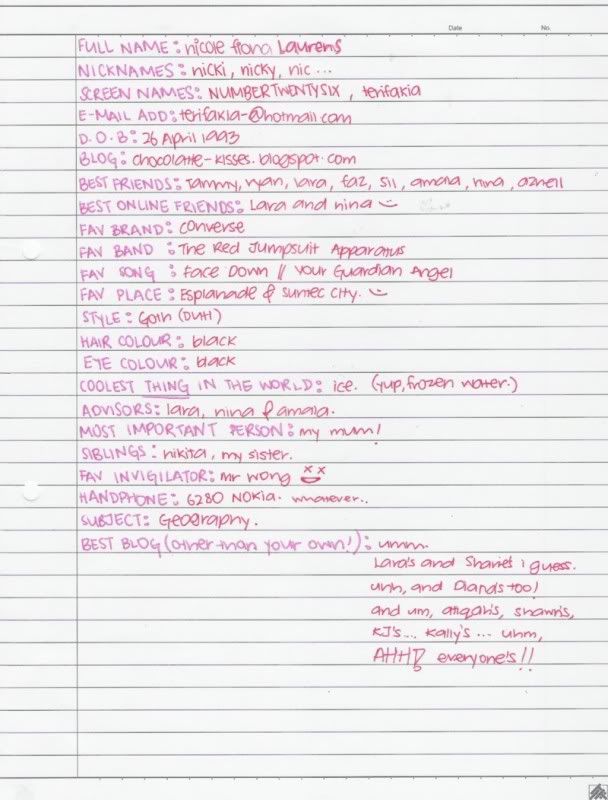 Date No.
FULL NAME: nicole fiona Laurens
NICKNAMES: nicki, nicky, nic ...
SCREEN NAMES: NUMBERTWENTYSIX, terifakia
E-MAIL ADD: terifakia-@hotmail.com
D.O.B: 26 April 1993
BLOG: chocolatte-kisses.blogspot.com
BEST FRIENDS: Tammy, ryan, lara, faz, sii, amara, nina, azneil
BEST ONLINE FRIENDS: Lara and nina
FAV BRAND: converse
FAV BAND: The Red Jumpsuit Apparatus
FAV SONG: Face Down // Your Guardian Angel
FAV PLACE: Esplanade & suntec city.
STYLE: Goth (DUH)
HAIR COLOUR: black
EYE COLOUR: black
COOLEST THING IN THE WORLD: ice. (yup, frozen water.)
ADVISORS: lara, nina & amara.
MOST IMPORTANT PERSON: my mum!
SIBLINGS: nikita, my sister.
FAV INVIGILATOR: mr wong
HANDPHONE: 6280 NOKIA. whatever..
SUBJECT: Geography.
BEST BLOG (other than your own!): umm.
Lara's and Sharie's i guess.
uhh, and Diana's too!
and um, atiqah's, shawn's,
KJ's... Kally's ... uhm,
AHH! everyone's!!